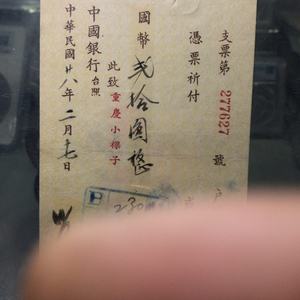 支票第 277627 號
憑票祈付
國幣弐拾圓整
此致重慶小樑子
中國銀行台照
中華民國廿八年二月十七日
230